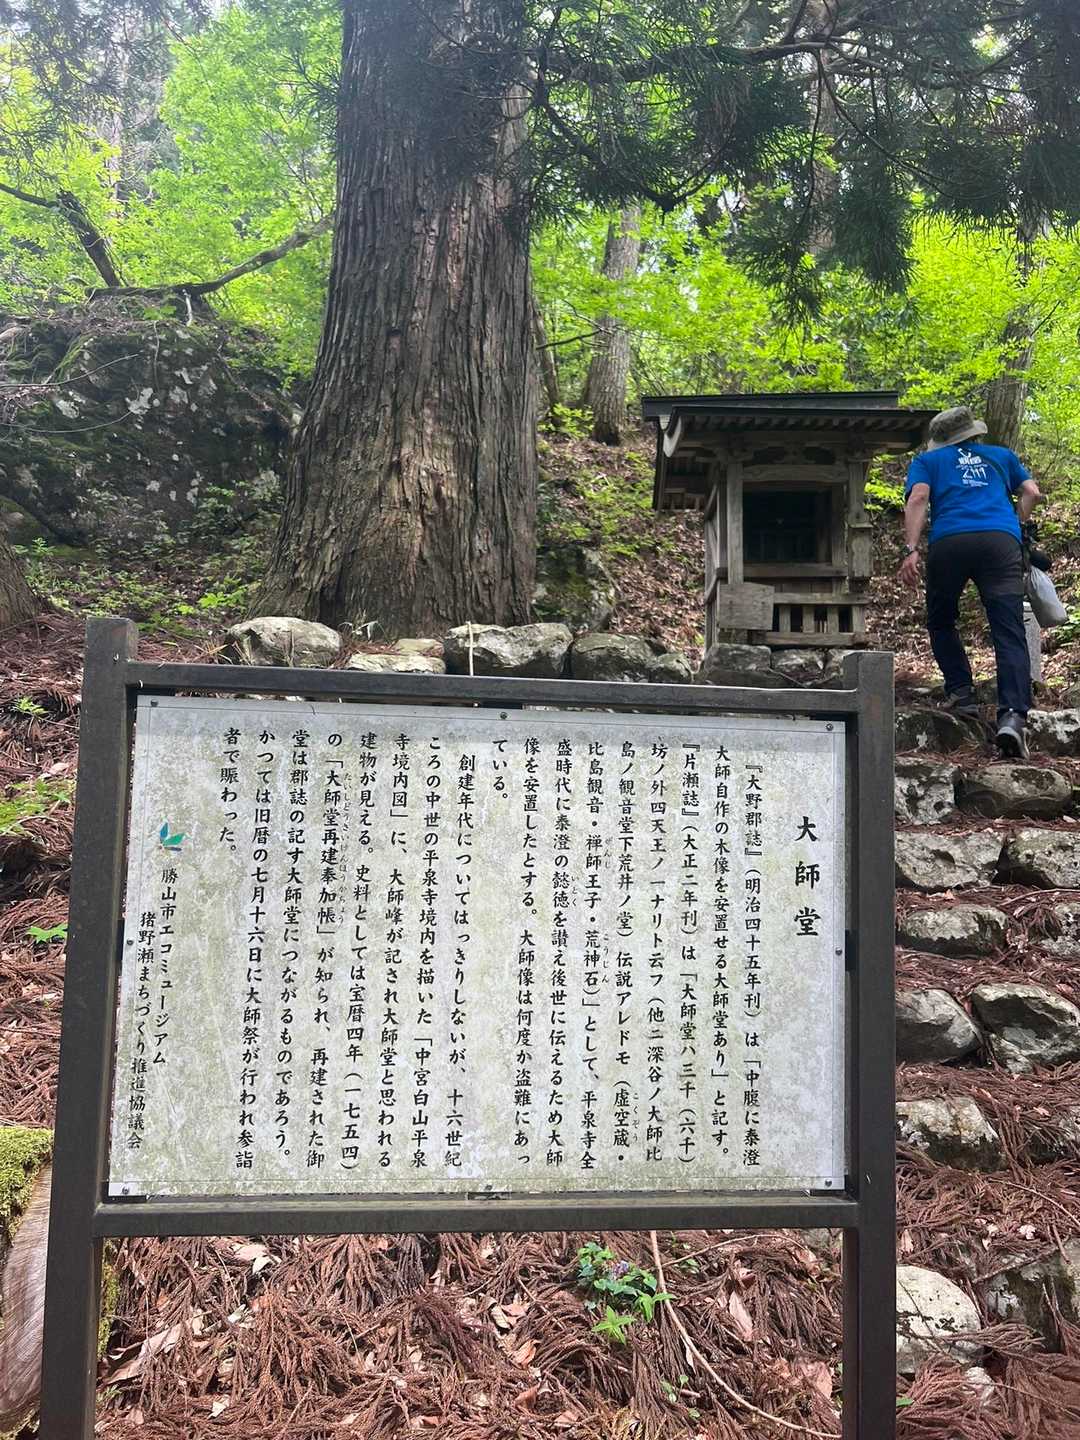 大師堂
『大野郡誌』（明治四十五年刊）は「中腹に泰澄
大師自作の木像を安置せる大師堂あり」と記す。
『片瀬誌』（大正二年刊）は「大師堂ハ三千（六千）
坊ノ外四天王ノ一ナリト云フ（他ニ深谷ノ大師比
島ノ観音堂下荒井ノ堂）伝説アレドモ（虚空蔵・
比島観音・禅師王子・荒神石）」として、平泉寺全
盛時代に泰澄の懿徳を讃え後世に伝えるため大師
像を安置したとする。大師像は何度か盗難にあっ
ている。
創建年代についてはっきりしないが、十六世紀
ころの中世の平泉寺境内を描いた「中宮白山平泉
寺境内図」に、大師峰が記され大師堂と思われる
建物が見える。史料としては宝暦四年（一七五四）
の「大師堂再建奉加帳」が知られ、再建された御
堂は郡誌の記す大師堂につながるものであろう。
かつては旧暦の七月十六日に大師祭が行われ参詣
者で賑わった。
勝山市エコミュージアム
猪野瀬まちづくり推進協議会